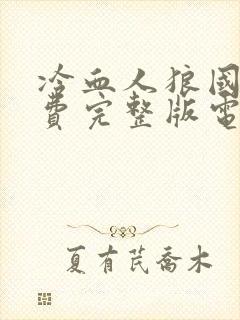 冷血人狼國
費完整版電
夏有芪喬木